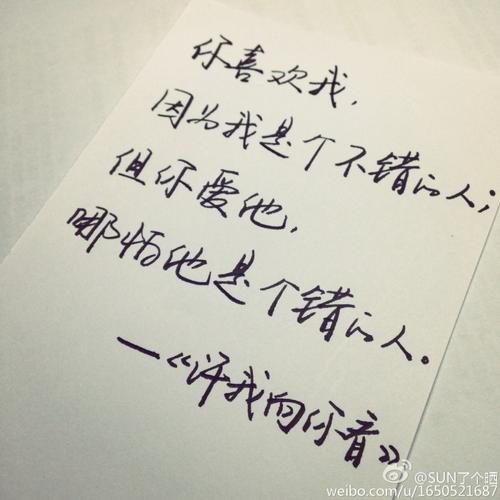 你喜欢我，
因为我是个不错的人；
但你爱他，
哪怕他是个错的人。
—《许我向你看》
@SUN了个晒
weibo.com/u/1650521687